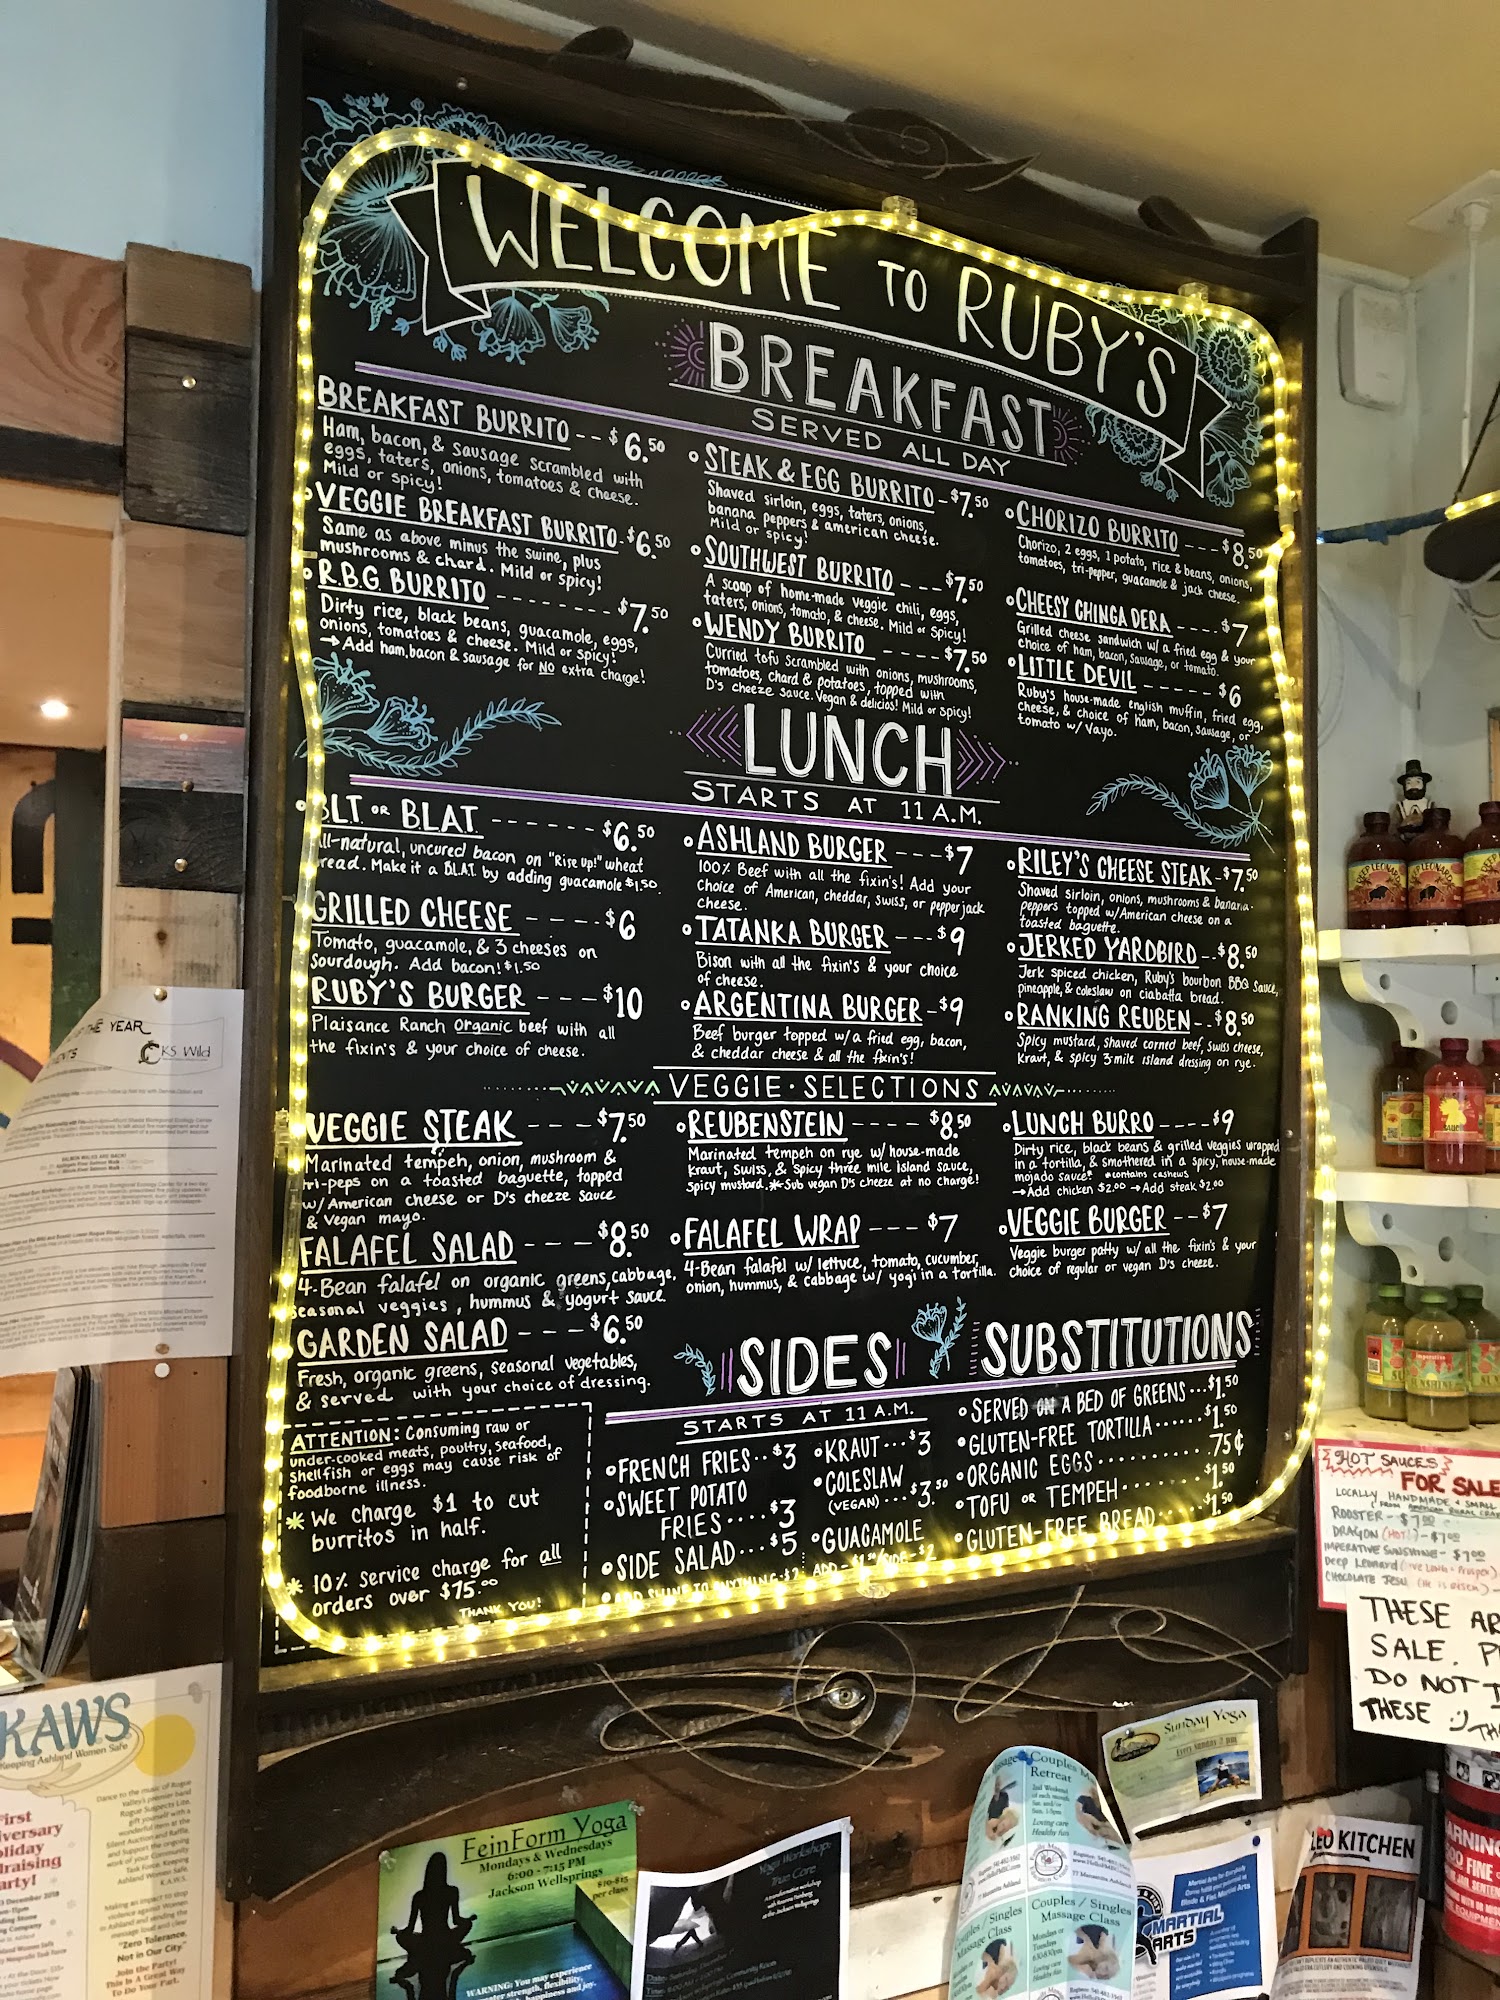 WELCOME TO RUBY'S
BREAKFAST
SERVED ALL DAY
BREAKFAST BURRITO -- $6.50
Ham, bacon, & sausage scrambled with
eggs, taters, onions, tomatoes & cheese.
Mild or spicy!
VEGGIE BREAKFAST BURRITO - $6.50
Same as above minus the swine, plus
mushrooms & chard. Mild or spicy!
R.B.G. BURRITO -------- $7.50
Dirty rice, black beans, guacamole, eggs,
onions, tomatoes & cheese. Mild or spicy!
→ Add ham, bacon & sausage for NO extra charge!
STEAK & EGG BURRITO - $7.50
Shaved sirloin, eggs, taters, onions,
banana peppers & american cheese.
Mild or spicy!
SOUTHWEST BURRITO --- $7.50
A scoop of home-made veggie chili, eggs,
taters, onions, tomato, & cheese. Mild or spicy!
WENDY BURRITO ---- $7.50
Curried tofu scrambled with onions, mushrooms,
tomatoes, chard & potatoes, topped with
D's cheeze sauce. Vegan & delicios! Mild or spicy!
CHORIZO BURRITO --- $8.50
Chorizo, 2 eggs, 1 potato, rice & beans, onions,
tomatoes, tri-pepper, guacamole & jack cheese.
CHEESY CHINGA DERA ---- $7
Grilled cheese sandwich w/ a fried egg & your
choice of ham, bacon, sausage, or tomato.
LITTLE DEVIL ----- $6
Ruby's house-made english muffin, fried egg,
cheese, & choice of ham, bacon, sausage, or
tomato w/ Vayo.
LUNCH
STARTS AT 11 A.M.
BLT OR BLAT ------ $6.50
All-natural, uncured bacon on "Rise Up!" wheat
bread. Make it a B.L.A.T. by adding guacamole $1.50.
GRILLED CHEESE ---- $6
Tomato, guacamole, & 3 cheeses on
sourdough. Add bacon! $1.50
RUBY'S BURGER --- $10
Plaisance Ranch organic beef with all
the fixin's & your choice of cheese.
ASHLAND BURGER --- $7
100% Beef with all the fixin's! Add your
choice of American, cheddar, swiss, or pepperjack
cheese.
TATANKA BURGER --- $9
Bison with all the fixin's & your choice
of cheese.
ARGENTINA BURGER - $9
Beef burger topped w/ a fried egg, bacon,
& cheddar cheese & all the fixin's!
RILEY'S CHEESE STEAK - $7.50
Shaved sirloin, onions, mushrooms & banana-
peppers topped w/ American cheese on a
toasted baguette.
JERKED YARDBIRD -- $8.50
Jerk spiced chicken, Ruby's bourbon BBQ sauce,
pineapple, & coleslaw on ciabatta bread.
RANKING REUBEN -- $8.50
Spicy mustard, shaved corned beef, swiss cheese,
kraut, & spicy 3-mile island dressing on rye.
VEGGIE · SELECTIONS
VEGGIE STEAK --- $7.50
Marinated tempeh, onion, mushroom &
tri-peps on a toasted baguette, topped
w/ American cheese or D's cheeze sauce
& Vegan mayo.
FALAFEL SALAD --- $8.50
4-Bean falafel on organic greens, cabbage,
seasonal veggies, hummus & yogurt sauce.
GARDEN SALAD --- $6.50
Fresh, organic greens, seasonal vegetables,
& served with your choice of dressing.
REUBENSTEIN ---- $8.50
Marinated tempeh on rye w/ house-made
kraut, swiss, & spicy three mile island sauce,
spicy mustard. * Sub vegan D's cheeze at no charge!
FALAFEL WRAP --- $7
4-Bean falafel w/ lettuce, tomato, cucumber,
onion, hummus, & cabbage w/ yogi in a tortilla.
LUNCH BURRO ---- $9
Dirty rice, black beans & grilled veggies wrapped
in a tortilla, & smothered in a spicy, house-made
mojado sauce! * contains cashews
→ Add chicken $2.00 → Add steak $2.00
VEGGIE BURGER -- $7
Veggie burger patty w/ all the fixin's & your
choice of regular or vegan D's cheeze.
ATTENTION: Consuming raw or
under-cooked meats, poultry, seafood,
shellfish or eggs may cause risk of
foodborne illness.
* We charge $1 to cut
burritos in half.
* 10% service charge for all
orders over $75.00
THANK YOU!
SIDES
STARTS AT 11 A.M.
FRENCH FRIES .. $3
SWEET POTATO
FRIES .... $3
SIDE SALAD ... $5
KRAUT ... $3
COLESLAW
(VEGAN) ... $3.50
GUACAMOLE
SUBSTITUTIONS
SERVED ON A BED OF GREENS ... $1.50
GLUTEN-FREE TORTILLA ...... $1.50
ORGANIC EGGS ........ .75¢
TOFU OR TEMPEH ...... $1.50
GLUTEN-FREE BREAD .. $1.50
HOT SAUCES
FOR SALE
LOCALLY HANDMADE & SMALL
ROOSTER - $7.00
DRAGON (HOT!) - $7.00
IMPERATIVE SUNSHINE - $7.00
DEEP LEONARD
CHOCOLATE JESU (HE IS RISEN)
THESE AR
SALE. P
DO NOT T
THESE
OF THE YEAR
KS Wild
KAWS
Keeping Ashland Women Safe
"Zero Tolerance,
Not in Our City."
Join the Party!
This Is A Great Way
To Do Your Part.
FeinForm Yoga
Mondays & Wednesdays
6:00 - 7:15 PM
Jackson Wellsprings
$10-$15
per class
WARNING: You may experience
Yoga Workshop:
True Core
Couples
Retreat
Loving care
Healthy fun
Couples / Singles
Massage Class
Sunday Yoga
MARTIAL
ARTS
LEO KITCHEN